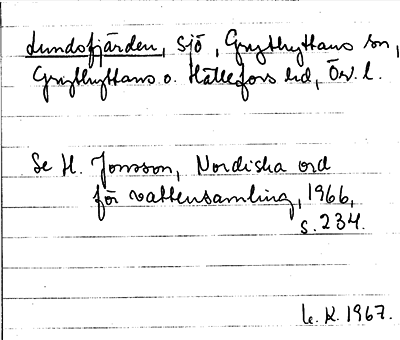 Lundsfjärden, sjö, Grythyttans sn,
Grythyttans o. Hällefors hd, Ör. l.
Se H. Jonsson, Nordiska ord
för vattensamling, 1966,
s. 234.
L. K. 1967.